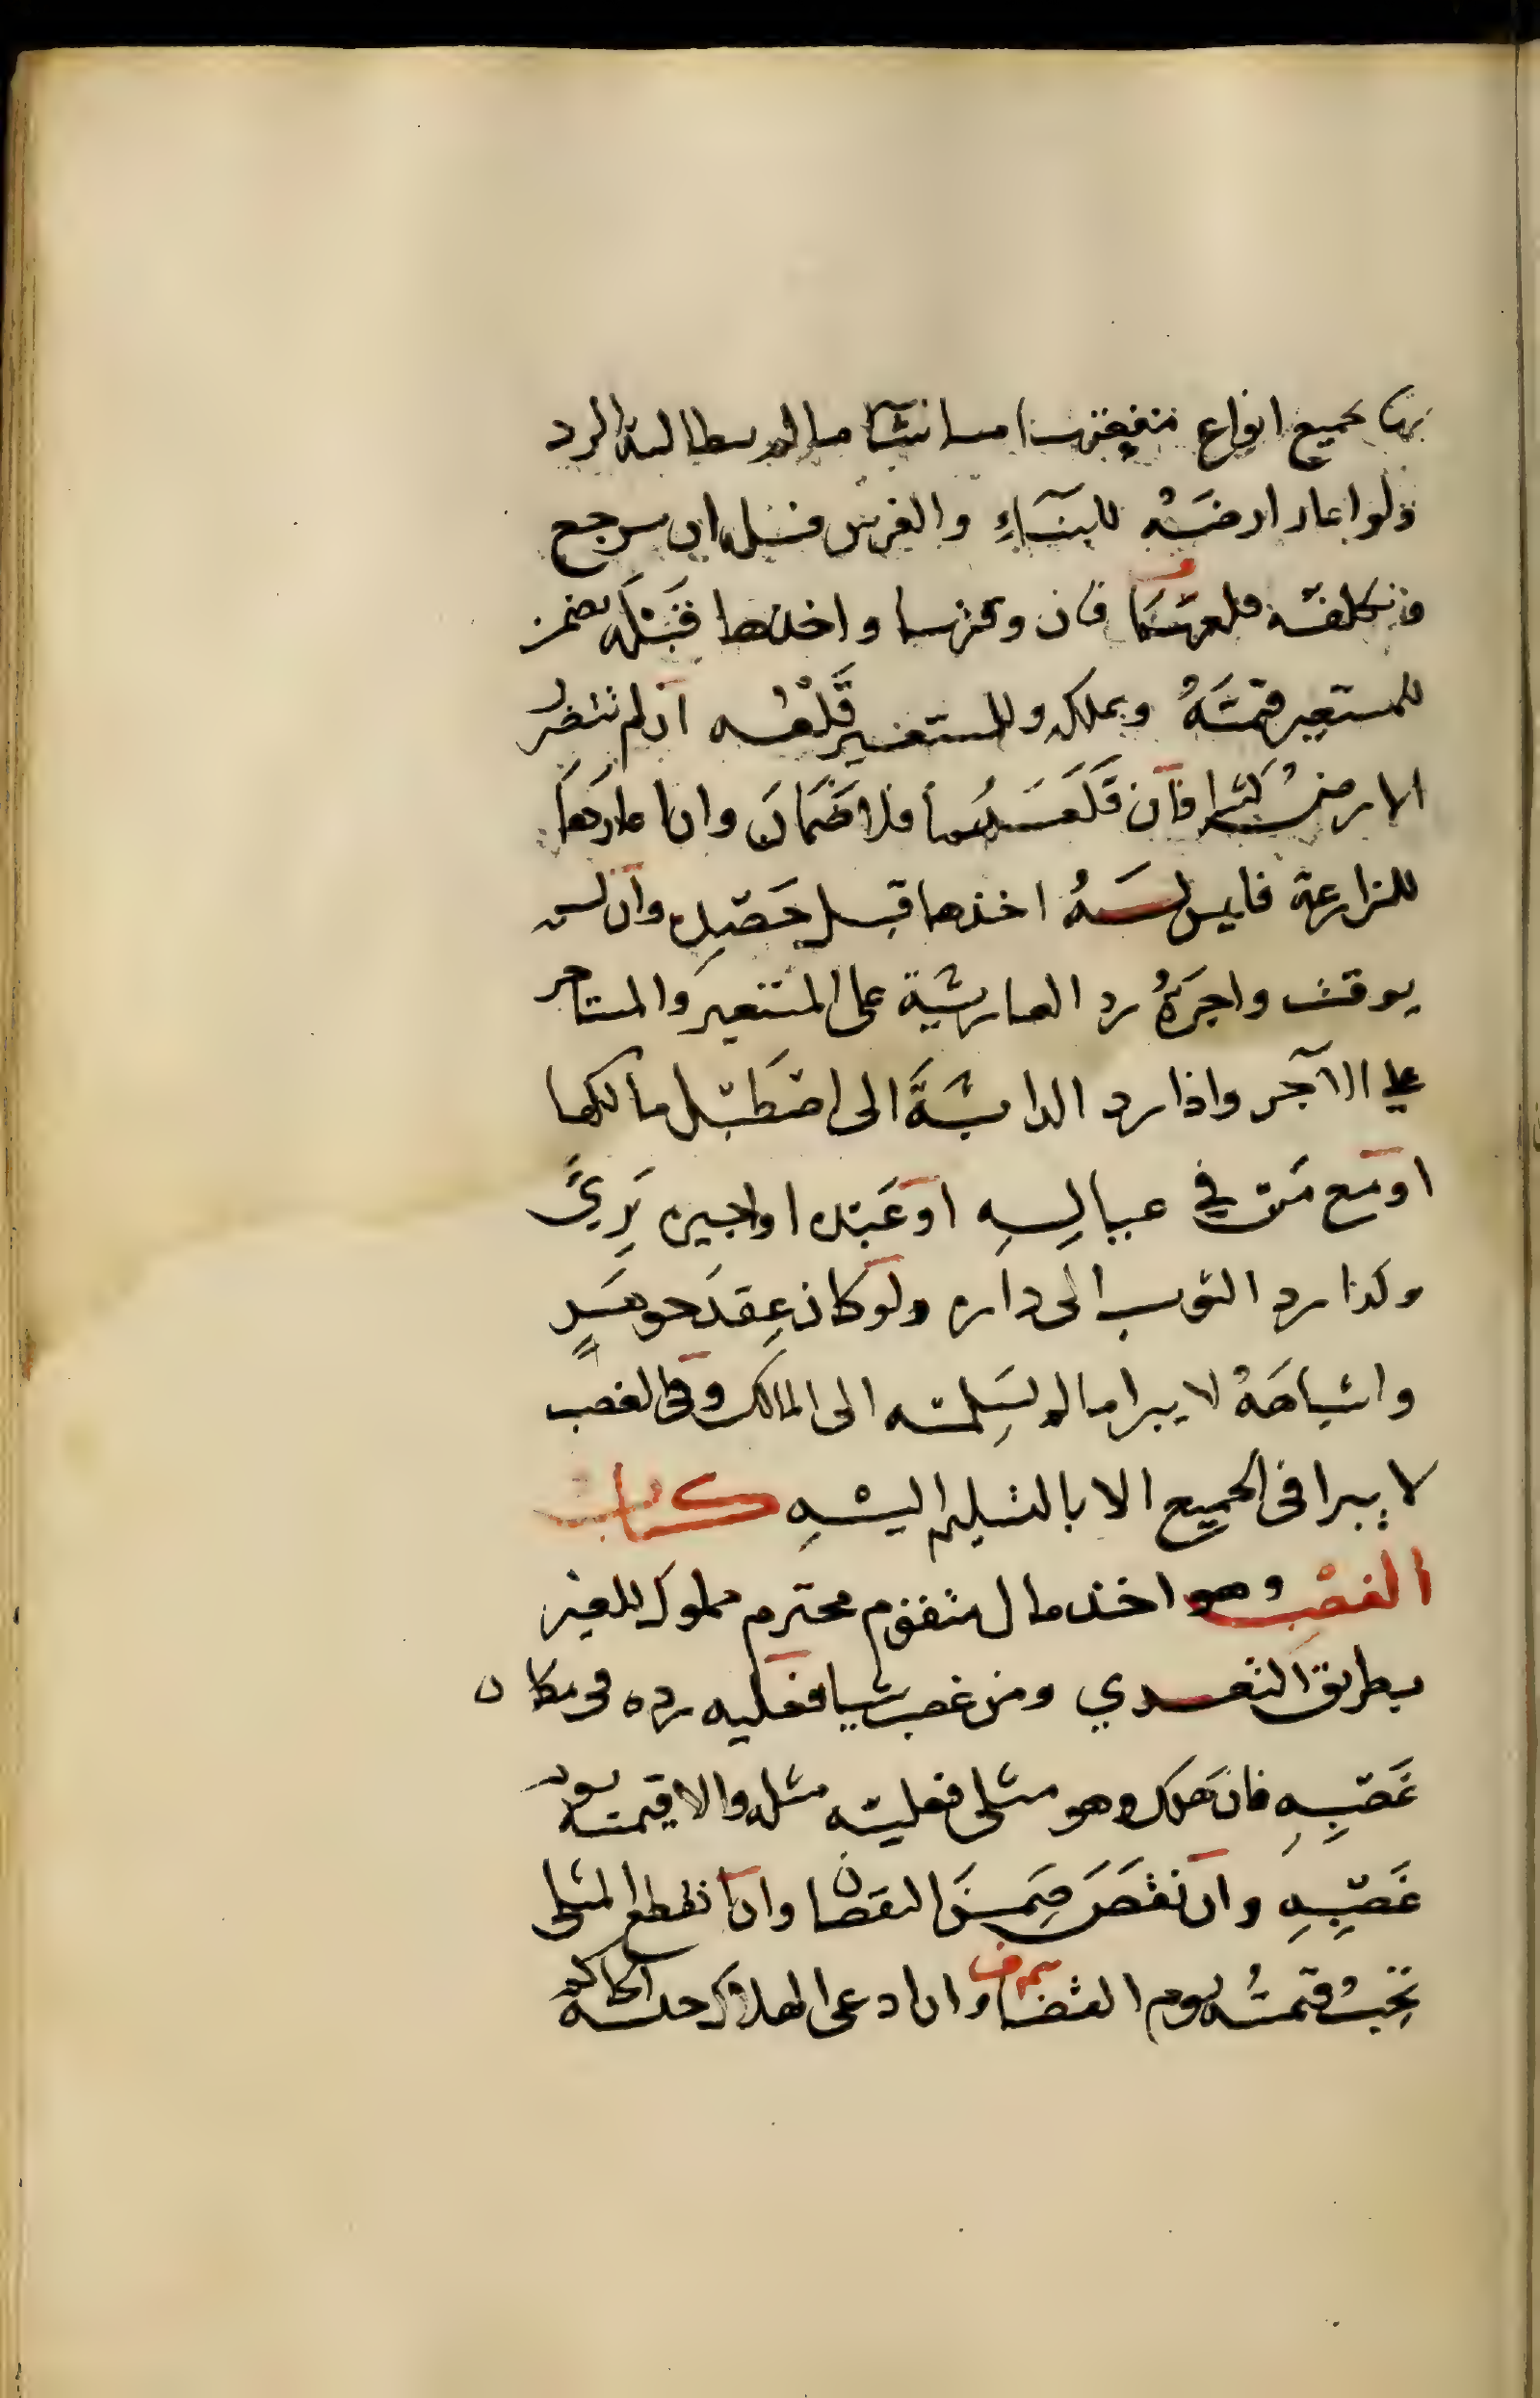 بها بجميع انواع منفعتها ما شا ما لم يطالبه بالرد
ولو اعار ارضه للبناء والغرس فله ان يرجع
ويكلفه قلعهما فان وقتها واخذها قبله يضمن
للمستعير قيمته ويملكه وللمستعير قلعه ان لم تتضرر
الارض كثيرا فان قلعهما فلا ضمان وان اعارها
للزراعة فليس له اخذها قبل حصده وان لم
يوقت واجرة رد العارية على المستعير والمستاجر
على الآجر واذا رد الدابة الى اصطبل مالكها
او مع من في عياله او عبده او اجيره بري
وكذا رد الثوب الى داره ولو كان عقد جوهر
واشباهه لا يبرا ما لم يسلمه الى المالك وفي الغصب
لا يبرا في الجميع الا بالتسليم اليه كتاب
الغصب وهو اخذ مال متقوم محترم مملوك للغير
بطريق التعدي ومن غصب شيا فعليه رده في مكان
غصبه فان هلك وهو مثلي فعليه مثله والا قيمته يوم
غصبه وان نقص ضمن النقصان وان انقطع المثلي
تجب قيمته يوم القضا وان ادعى الهلاك حبسه الحاكم